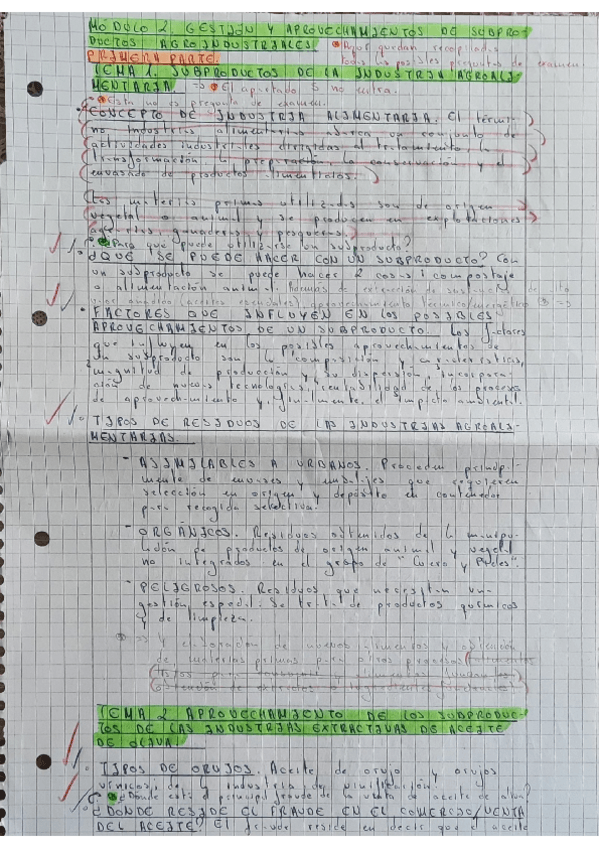 MODULO 2. GESTIÓN Y APROVECHAMIENTOS DE SUBPRO-
DUCTOS AGROINDUSTRIALES
Aquí quedan recopiladas
todas las posibles preguntas de examen.
PRIMERA PARTE.
TEMA 1. SUBPRODUCTOS DE LA INDUSTRIA AGROALI-
MENTARIA => El apartado 5 no entra.
Esta no es pregunta de examen.
CONCEPTO DE INDUSTRIA ALIMENTARIA. El térmi-
no industrias alimentarias abarca un conjunto de
actividades industriales dirigidas al tratamiento, la
transformación, la preparación, la conservación y el
envasado de productos alimenticios.
Las materias primas utilizadas son de origen
vegetal o animal y se producen en explotaciones
agrarias, ganaderas y pesqueras.
¿Para qué puede utilizarse un subproducto?
¿QUE SE PUEDE HACER CON UN SUBPRODUCTO? Con
un subproducto se puede hacer 2 cosas: compostaje
o alimentación animal. Además de de sustancias de alto
valor añadido (aceites esenciales), aprovechamiento térmico/energético
FACTORES QUE INFLUYEN EN LOS POSIBLES
APROVECHAMIENTOS DE UN SUBPRODUCTO. Los factores
que influyen en los posibles aprovechamientos de
un subproducto son la composición y características,
magnitud de producción y su dispersión, incorpora-
ción de nuevas tecnologías, rentabilidad de los procesos
de aprovechamiento y, finalmente, el impacto ambiental.
TIPOS DE RESIDUOS DE LAS INDUSTRIAS AGROALI-
MENTARIAS.
- ASIMILABLES A URBANOS. Proceden principal-
mente de envases y embalajes que requieren
selección en origen y depósito en contenedor
para recogida selectiva.
- ORGÁNICOS. Residuos obtenidos de la manipu-
lación de productos de origen animal y vegetal
no integrados en el grupo de "Cuero y Pieles".
- PELIGROSOS. Residuos que necesitan una
gestión especial. Se trata de productos químicos
y de limpieza.
=> Y elaboración de nuevos alimentos y obtención
de materias primas para otros procesos
TEMA 2. APROVECHAMIENTO DE LOS SUBPRODUC-
TOS DE LAS INDUSTRIAS EXTRACTIVAS DE ACEITE
DE OLIVA.
TIPOS DE ORUJOS. Aceite de orujo y orujos
vínicos de la industria de vinificación.
¿Dónde está el principal fraude de la venta de aceite de oliva?
¿DONDE RESIDE EL FRAUDE EN EL COMERCIO/VENTA
DEL ACEITE? El fraude reside en decir que el aceite